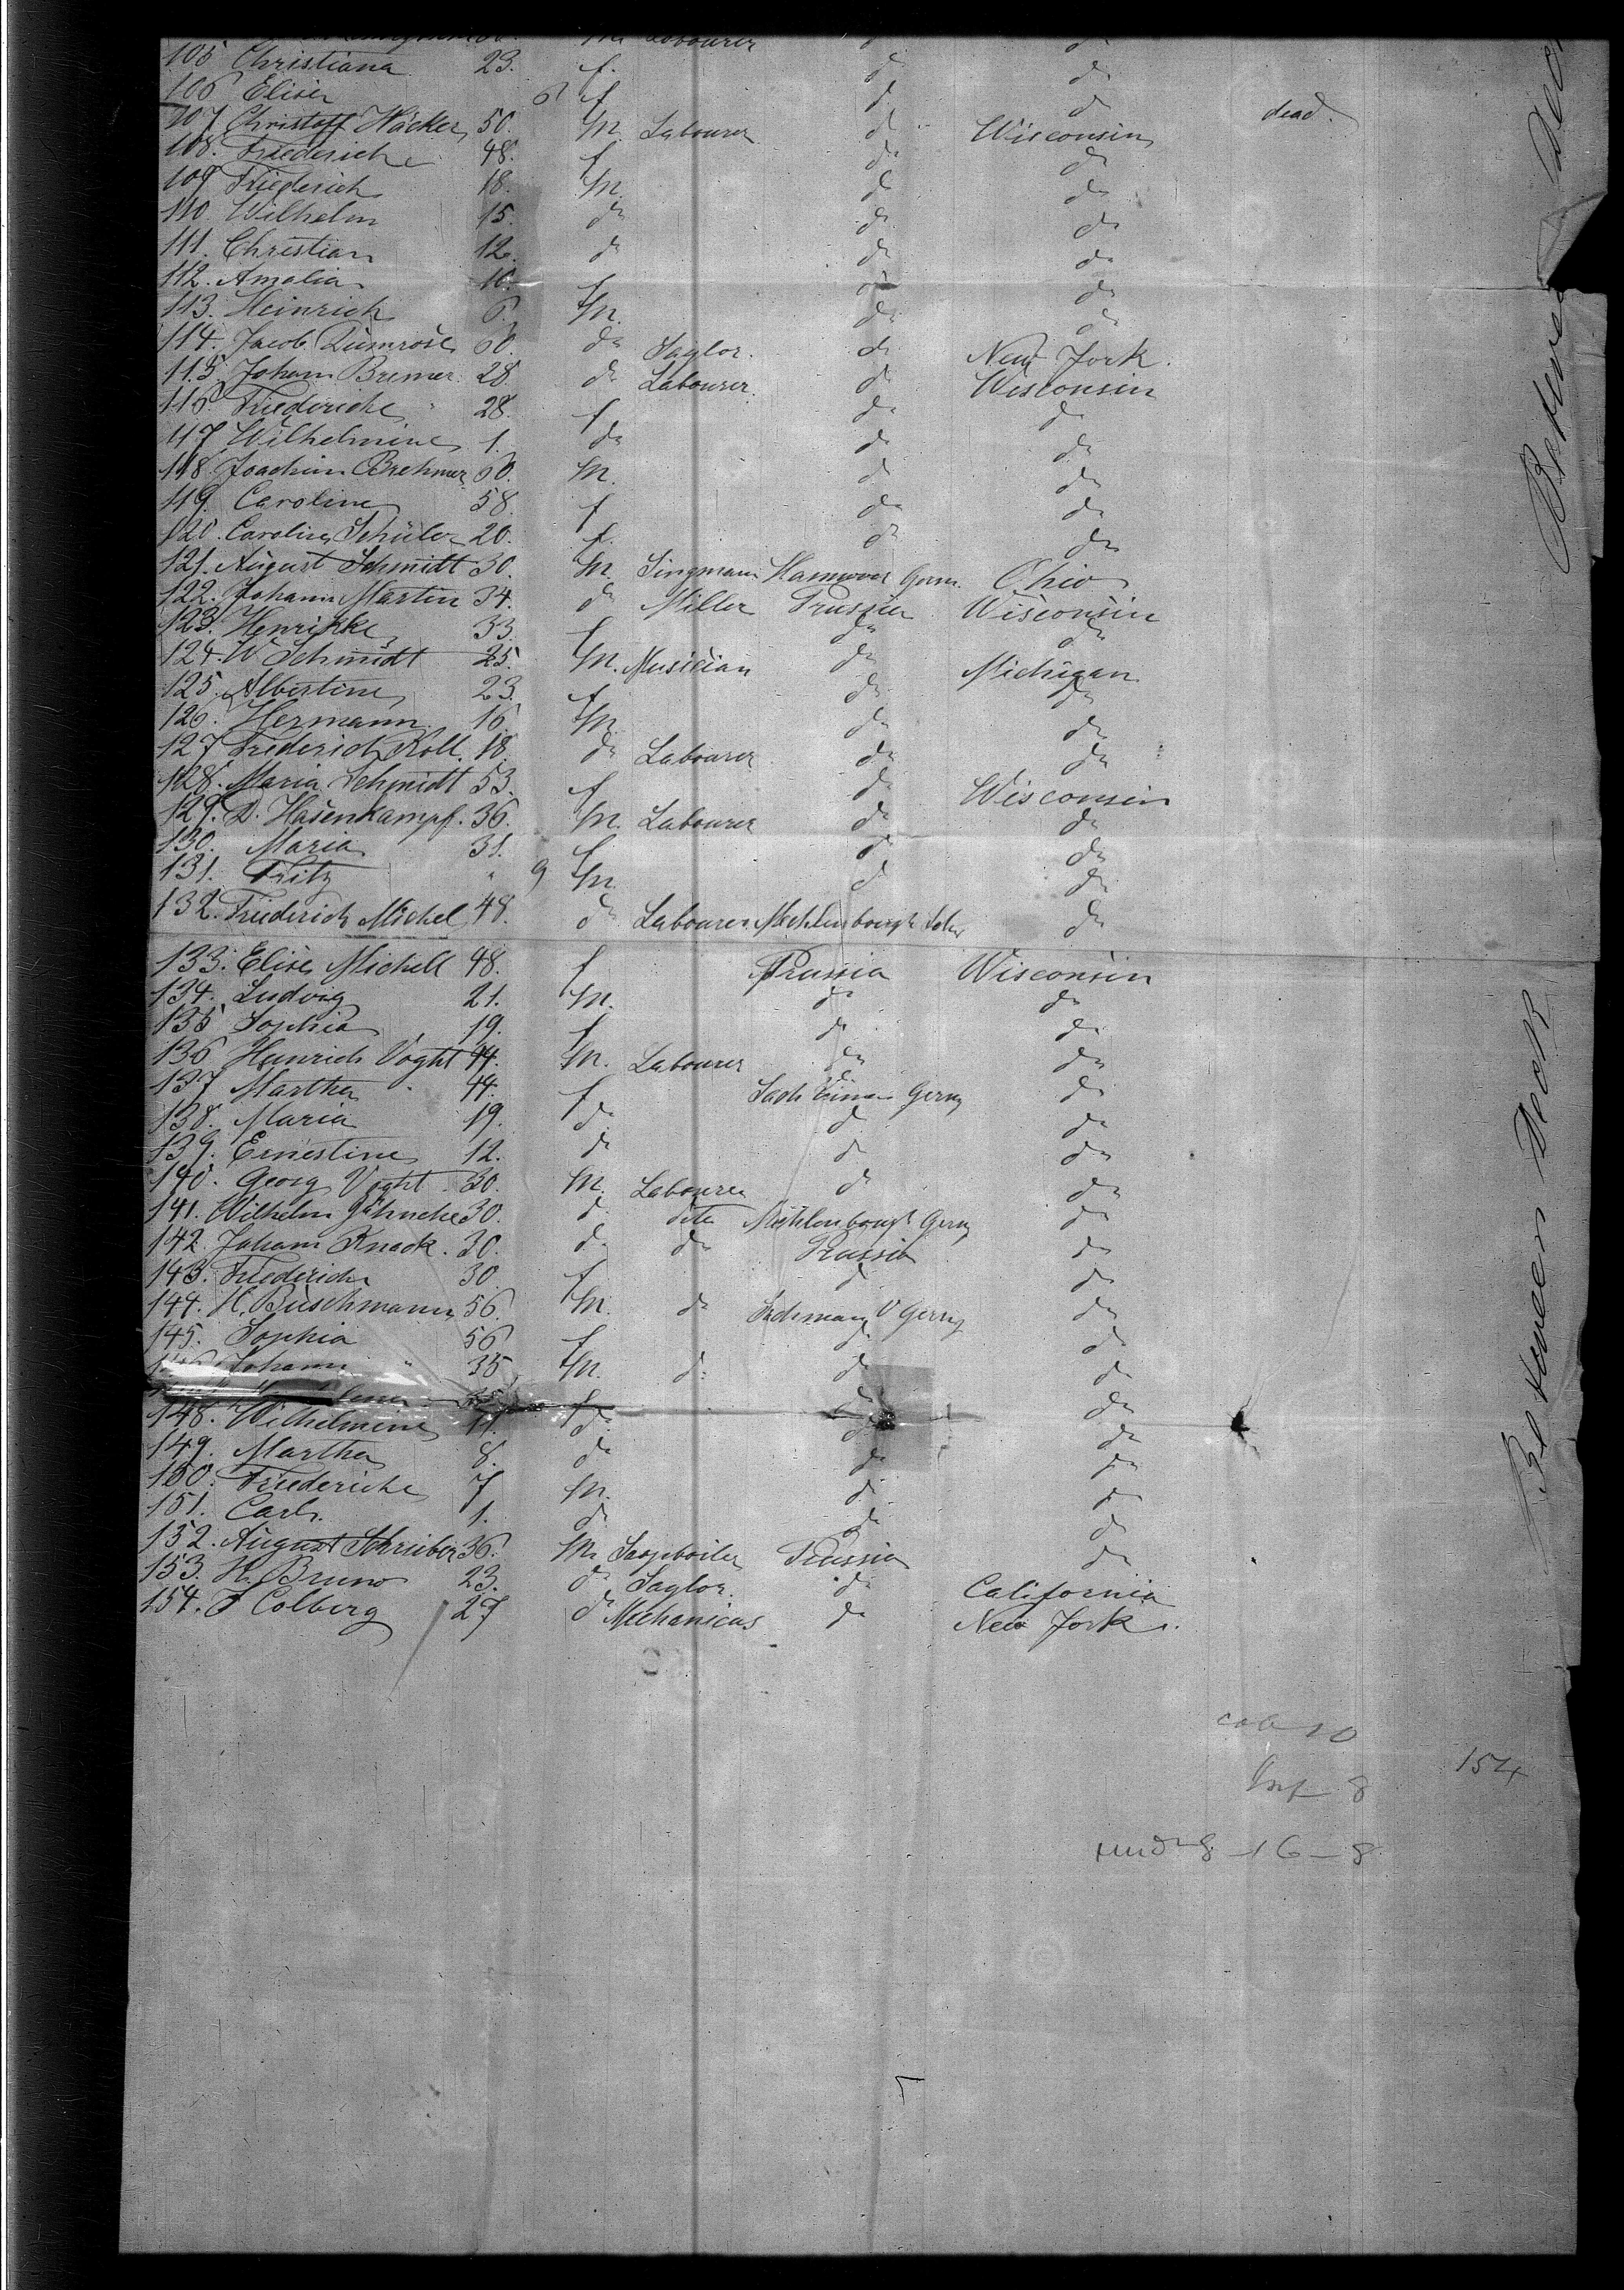 m Labourer d d
105 Christiana 23. f. d d
106 Elise 6 f d d dead.
107 Christoff Häcker 50. m. Labourer d Wisconsin
108. Friederich 48. f d d
109 Friederich 18. m. d d
110. Wilhelm 15. d d d
111. Christian 12. d d d
112. Amalia 10. f d d
113. Heinrich 6. m. d d
114. Jacob 60. d Taylor. d New York.
115. Johann Bremer. 28 d Labourer. d Wisconsin
116. Friedericke " 28. f d d
117 Wilhelmine 1. d d d
118. Joachim Brehmer 60. m. d d
119. Caroline 58. f d d
120. Caroline Schüler 20. f. d d
121. August Schmidt 30. m. Hannover Germ. Ohio
122. Johann Martin 34. d Miller Prussia Wisconsin
123. Henrikke 33. f d d
124. W Schmidt 25. m. Musician d Michigan
125. Albertine 23. f d d
126. Hermann. 16. m. d d
127 Frederich Koll. 18. d Labourer d d
128. Maria Schmidt 53. f d Wisconsin
129. D. Hasenkampf. 36. m. Labourer d d
130. Maria 31. f d d
131. Fritz " 9 m. d d
132. Friederich Michel 48. d Labourer d
133. Elise Michell 48. f Prussia Wisconsin
134. Ludvig 21. m. d d
135 Sophia 19. f d d
136 Heinrich Voght 44. m. Labourer d d
137 Martha " 44. f Gerny d
138. Maria 19. d d d
139. Ernestine 12. d d d
140. Georg Voght 30. m. Labourer d d
141. Wilhelm Jähncke 30. d. dito Gerny d
142. Johann Knack. 30. d. d Prussia d
143. Friederich 30 f d d
144. H. Buschmann 56. m. d Gerny d
145. Sophia 56 f d. d
146 Johann " 35 m. d. d d
35 f d d
148. Wilhelmine 11. d. d d
149. Martha 8. d d d
150. Friederiche 7 m. d d
151. Carl. 1. d d d
152. August Schriber 36. m. Soapboiler Prussia d
153. H. Bruno 23. d Taylor. d California
154. J Colberg 27 d Mechanicus d New York.
cab 10
Inf 8
154
8 - 16 - 8
Between Deck
Between Deck